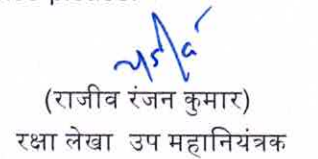 (राजीव रंजन कुमार)
रक्षा लेखा उप महानियंत्रक